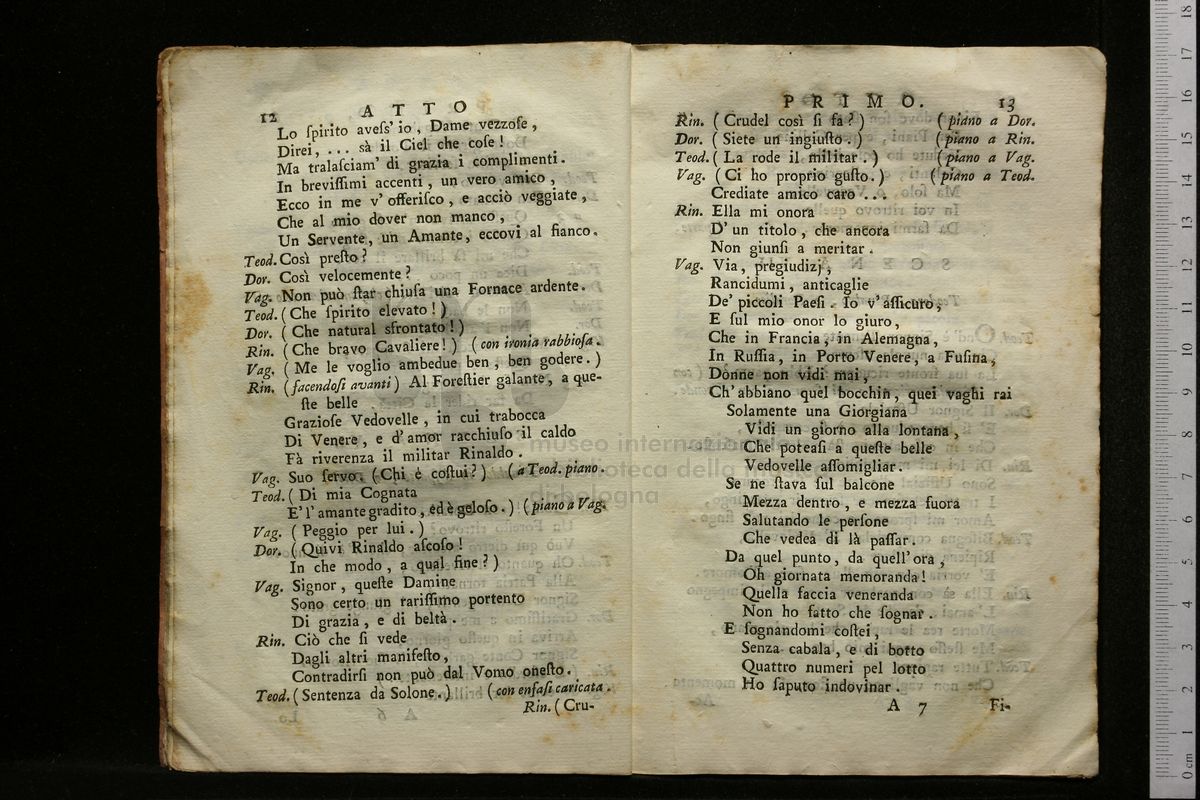 12 ATTO
Lo ſpirito aveſs' io, Dame vezzoſe,
Direi, ... sà il Ciel che coſe!
Ma tralaſciam' di grazia i complimenti.
In breviſſimi accenti, un vero amico,
Ecco in me v' offeriſco, e acciò veggiate,
Che al mio dover non manco,
Un Servente, un Amante, eccovi al fianco.
Teod. Così preſto?
Dor. Così velocemente?
Vag. Non può ſtar chiuſa una Fornace ardente.
Teod. (Che ſpirito elevato!)
Dor. (Che natural sfrontato!)
Rin. (Che bravo Cavaliere!) (con ironia rabbioſa.
Vag. (Me le voglio ambedue ben, ben godere.)
Rin. (facendoſi avanti) Al Foreſtier galante, a que-
ſte belle
Grazioſe Vedovelle, in cui trabocca
Di Venere, e d'amor racchiuſo il caldo
Fà riverenza il militar Rinaldo.
Vag. Suo ſervo. (Chi è coſtui?) (a Teod. piano.
Teod. (Di mia Cognata
E' l' amante gradito, ed è geloſo.) (piano a Vag.
Vag. (Peggio per lui.)
Dor. (Quivi Rinaldo aſcoſo!
In che modo, a qual fine?)
Vag. Signor, queſte Damine
Sono certo un rariſſimo portento
Di grazia, e di beltà.
Rin. Ciò che ſi vede
Dagli altri manifeſto,
Contradirſi non può dal Vomo oneſto.
Teod. (Sentenza da Solone.) (con enfaſi caricata.
Rin. (Cru-
PRIMO. 13
Rin. (Crudel così ſi fa?) (piano a Dor.
Dor. (Siete un ingiuſto.) (piano a Rin.
Teod. (La rode il militar.) (piano a Vag.
Vag. (Ci ho proprio guſto.) (piano a Teod.
Crediate amico caro ...
Rin. Ella mi onora
D' un titolo, che ancora
Non giunſi a meritar.
Vag. Via, pregiudizj,
Rancidumi, anticaglie
De' piccoli Paeſi. Io v' aſſicuro,
E ſul mio onor lo giuro,
Che in Francia, in Alemagna,
In Ruſſia, in Porto Venere, a Fuſina,
Donne non vidi mai,
Ch' abbiano quel bocchin, quei vaghi rai
Solamente una Giorgiana
Vidi un giorno alla lontana,
Che poteaſi a queſte belle
Vedovelle aſſomigliar.
Se ne ſtava ſul balcone
Mezza dentro, e mezza fuora
Salutando le perſone
Che vedea di là paſſar.
Da quel punto, da quell' ora,
Oh giornata memoranda!
Quella faccia veneranda
Non ho fatto che ſognar.
E ſognandomi coſtei,
Senza cabala, e di botto
Quattro numeri pel lotto
Ho ſaputo indovinar.
A 7 Fi-
museo internazionale
biblioteca della musica
di bologna
0 cm 1 2 3 4 5 6 7 8 9 10 11 12 13 14 15 16 17 18